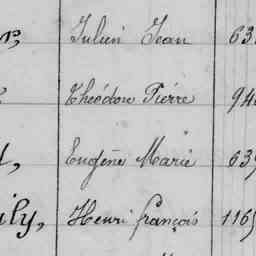 Julien Jean 63
Théodore Pierre 94
Eugène Marie 639
ily, Henri françois 1169